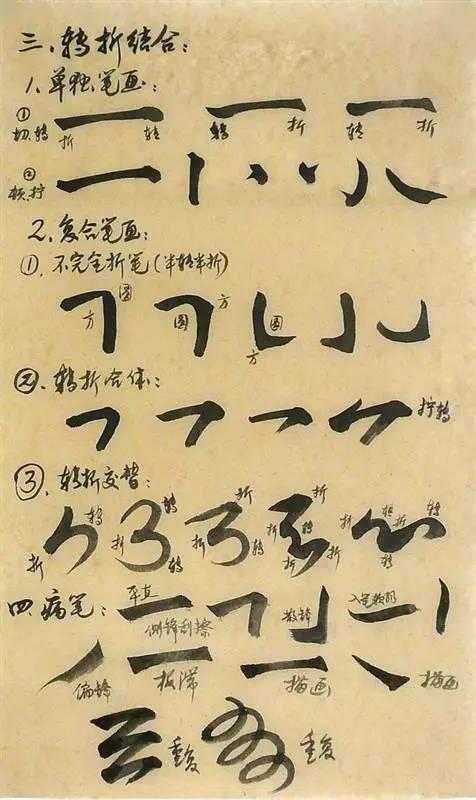 三、转折结合：
1.单独笔画：
①切.转 折 转 转 折 转 折
②顿.拧
2.复合笔画：
①.不完全折笔(半转半折)
方 圆 圆 方 圆 方
②.转折合体：
拧转
③.转折交替：
折 转 折 转 转 折 折 转 折 折 转 折 折 折 转 折 转 转
四.病笔：
平直 侧锋刮擦 散锋 入笔顿
偏锋 板滞 描画 描画
重复 重复